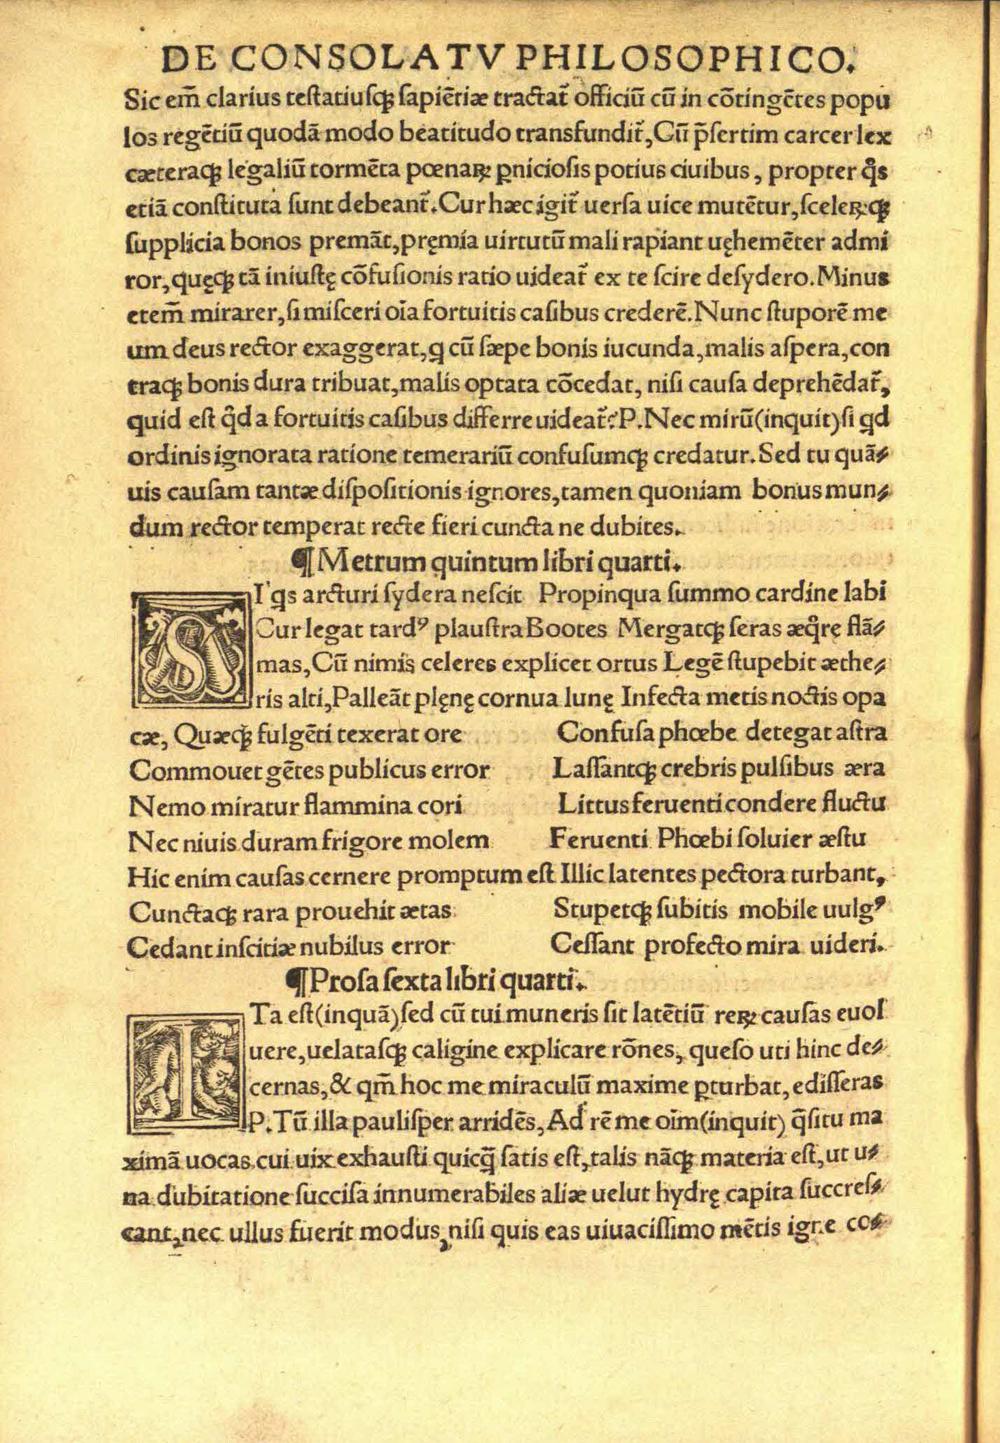 DE CONSOLATV PHILOSOPHICO.
Sic em̃ clarius testatiusqꝫ sapiẽtiæ tractat̃ officiũ cũ in cõtingẽtes popu
los regẽtiũ quodã modo beatitudo transfundit̃, Cũ p̃sertim carcer lex
cæteraqꝫ legaliũ tormẽta pœnaꝝ ꝑniciosis potius ciuibus, propter q̃s
etiã constituta sunt debeant̃. Cur hæc igit̃ uersa uice mutẽtur, sceleꝝqꝫ
supplicia bonos premãt, pręmia uirtutũ mali rapiant uęhemẽter admi
ror, quęqꝫ tã iniustę cõfusionis ratio uideat̃ ex te scire desydero. Minus
etem̃ mirarer, si misceri oĩa fortuitis casibus crederẽ. Nunc stuporẽ me
um deus rector exaggerat, ꝗ cũ sæpe bonis iucunda, malis aspera, con
traqꝫ bonis dura tribuat, malis optata cõcedat, nisi causa deprehẽdat̃,
quid est q̃d a fortuitis casibus differre uideat̃? P. Nec mirũ (inquit) si ꝗd
ordinis ignorata ratione temerariũ confusumqꝫ credatur. Sed tu quã⸗
uis causam tantæ dispositionis ignores, tamen quoniam bonus mun⸗
dum rector temperat recte fieri cuncta ne dubites.
¶ Metrum quintum libri quarti.
SI ꝗs arcturi sydera nescit Propinqua summo cardine labi
Cur legat tardꝰ plaustra Bootes Mergatqꝫ seras æq̃rę flã⸗
mas, Cũ nimis celeres explicet ortus Legẽ stupebit æthe⸗
ris alti, Palleãt plęnę cornua lunę Infecta metis noctis opa
cæ, Quæqꝫ fulgẽti texerat ore Confusa phœbe detegat astra
Commouet gẽtes publicus error Lassantqꝫ crebris pulsibus æra
Nemo miratur flammina cori Littus feruenti condere fluctu
Nec niuis duram frigore molem Feruenti Phœbi soluier æstu
Hic enim causas cernere promptum est Illic latentes pectora turbant,
Cunctaqꝫ rara prouehit ætas Stupetqꝫ subitis mobile uulgꝰ
Cedant inscitiæ nubilus error Cessant profecto mira uideri.
¶ Prosa sexta libri quarti.
ITa est (inquã) sed cũ tui muneris sit latẽtiũ reꝝ causas euol
uere, uelatasqꝫ caligine explicare rõnes, queso uti hinc de⸗
cernas, & qm̃ hoc me miraculũ maxime ꝑturbat, edisseras
P. Tũ illa paulisper arridẽs, Ad rẽ me oĩm (inquit) q̃situ ma
ximã uocas cui uix exhausti quicq̃ satis est, talis nãqꝫ materia est, ut u⸗
na dubitatione succisa innumerabiles aliæ uelut hydrę capita succres⸗
cant, nec ullus fuerit modus, nisi quis eas uiuacissimo mẽtis igne co⸗